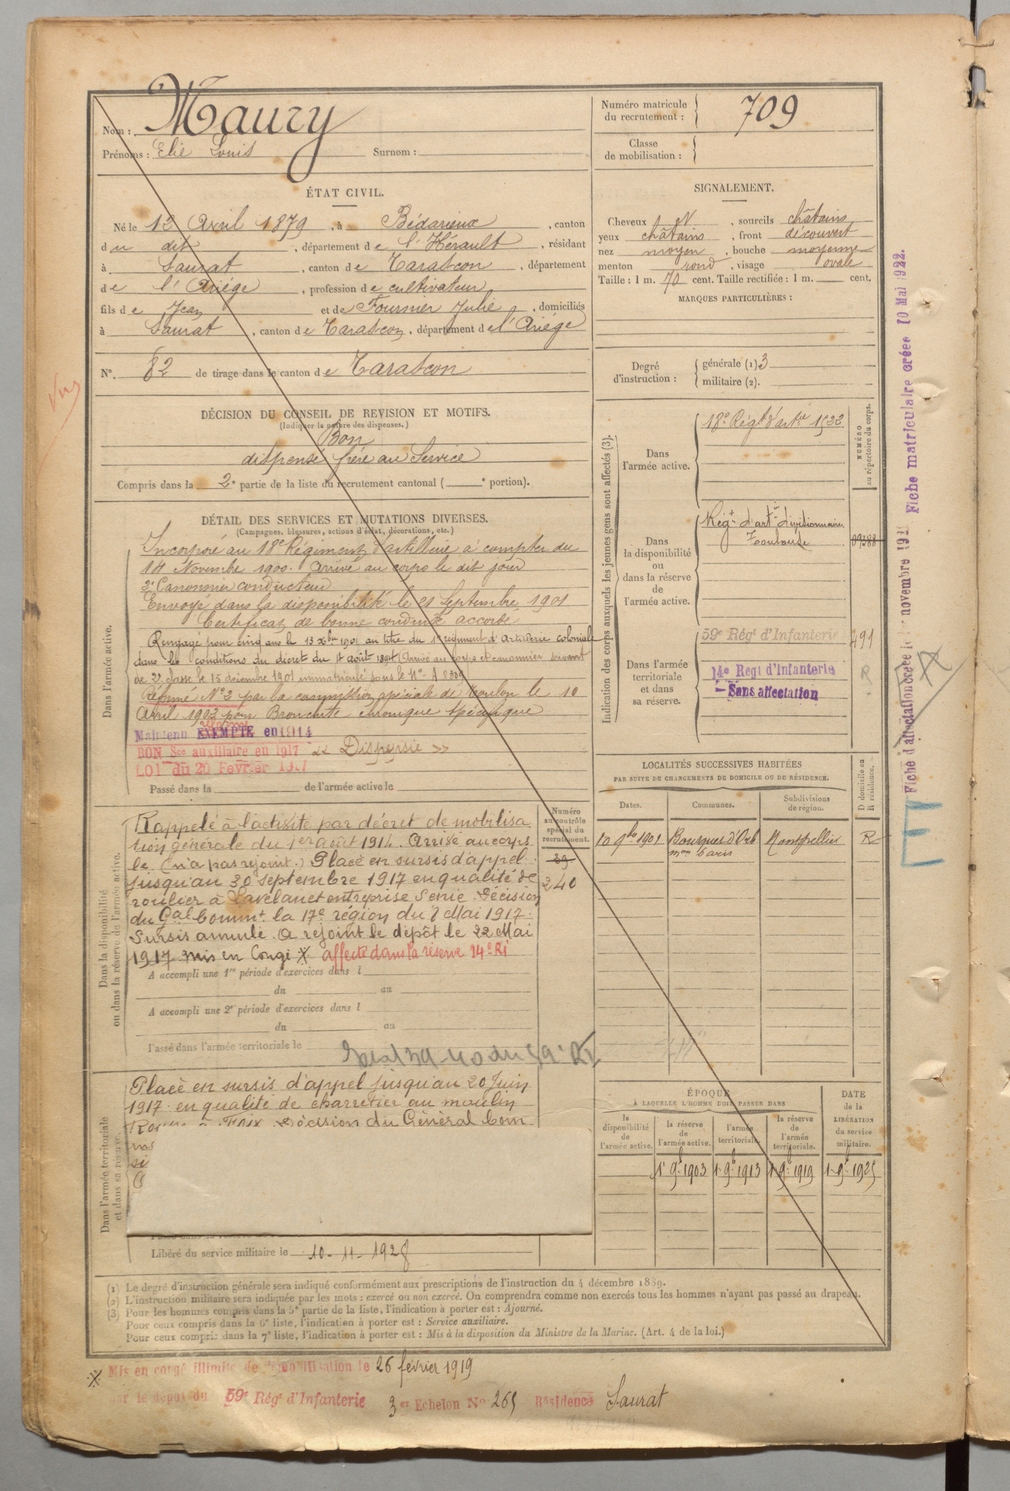 Nom : Maury
Prénoms : Elie Louis Surnom :
Numéro matricule du recrutement : 709
Classe de mobilisation :
ÉTAT CIVIL.
Né le 12 Avril 1879, à Bédarieux, canton
du dit, département de l'Hérault, résidant
à Saurat, canton de Tarascon, département
de l'Ariége, profession de cultivateur
fils de Jean et de Fournier Julie, domiciliés
à Saurat, canton de Tarascon, département de l'Ariége
N° 82 de tirage dans le canton de Tarascon
DÉCISION DU CONSEIL DE REVISION ET MOTIFS.
(Indiquer la nature des dispenses.)
Bon
dispensé frère au Service
Compris dans la 2e partie de la liste du recrutement cantonal ( e portion).
SIGNALEMENT.
Cheveux N, sourcils châtains
yeux châtains, front découvert
nez moyen, bouche moyenne
menton rond, visage ovale
Taille : 1 m. 70 cent. Taille rectifiée : 1 m. cent.
MARQUES PARTICULIÈRES :
Degré d'instruction : générale (1) 3
militaire (2).
Indication des corps auxquels les jeunes gens sont affectés (3).
NUMÉRO au répertoire du corps.
Dans l'armée active. 18e Régt d'artie 1533
Dans la disponibilité ou dans la réserve de l'armée active. Régt d'artie divisionnaire Toulouse
Dans l'armée territoriale et dans sa réserve. 59e Régt d'Infanterie 491
14e Regt d'Infanterie R
Sans affectation
DÉTAIL DES SERVICES ET MUTATIONS DIVERSES.
(Campagnes, blessures, actions d'éclat, décorations, etc.)
Dans l'armée active.
Incorporé au 18e Régiment d'artillerie à compter du
14 Novembre 1900. Arrivé au corps le dit jour
2e Canonnier conducteur
Envoyé dans la disponibilité le 21 Septembre 1901
Certificat de bonne conduite accordé
Rengagé pour cinq ans le 13 Xbre 1901 au titre du 1er régiment d'Artillerie coloniale
dans les conditions du décret du août Arrivé au corps et canonnier servant
de 2e classe le 15 décembre 1901 immatriculé sous le N°
Réformé N°2 par la commission spéciale de Toulon le 10
Avril 1902 pour Bronchite chronique spécifique
Maintenu EXEMPTÉ en 1914
BON Sce auxiliaire en 1917 « Dispepsie »
LOI du 20 Fevrier 1917
Passé dans la de l'armée active le
Dans la disponibilité ou dans la réserve de l'armée active.
Numéro au contrôle spécial du recrutement.
39
240
Rappelé à l'activité par décret de mobilisa
tion générale du 1er août 1914. Arrivé au corps
le (n'a pas rejoint.) Placé en sursis d'appel
jusqu'au 30 septembre 1917 en qualité de
roulier à Lavelanet entreprise Décision
du Gal Commt la 17e région du 8 Mai 1917.
Sursis annulé. A rejoint le dépôt le 22 Mai
1917 mis en Congé X affecté dans la réserve 14e RI
A accompli une 1re période d'exercices dans l
du au
A accompli une 2e période d'exercices dans l
du au
Passé dans l'armée territoriale le
Dans l'armée territoriale et dans sa réserve.
Placé en sursis d'appel jusqu'au 20 Juin
1917 en qualité de charretier au moulin
à Foix Décision du Général Com
Libéré du service militaire le 10-11-1928
LOCALITÉS SUCCESSIVES HABITÉES
PAR SUITE DE CHANGEMENTS DE DOMICILE OU DE RÉSIDENCE.
Dates. Communes. Subdivisions de région. D domicile ou R résidence.
10 9bre 1901 Bousquet d'Orb Montpellier R
ÉPOQUE
À LAQUELLE L'HOMME DOIT PASSER DANS
la disponibilité de l'armée active. la réserve de l'armée active. l'armée territoriale. la réserve de l'armée territoriale.
DATE de la LIBÉRATION du service militaire.
1 9b 1903 1 9b 1913 1 9b 1919 1 9b 1925
(1) Le degré d'instruction générale sera indiqué conformément aux prescriptions de l'instruction du 4 décembre 1889.
(2) L'instruction militaire sera indiquée par les mots : exercé ou non exercé. On comprendra comme non exercés tous les hommes n'ayant pas passé au drapeau.
(3) Pour les hommes compris dans la 5e partie de la liste, l'indication à porter est : Ajourné.
Pour ceux compris dans la 6e liste, l'indication à porter est : Service auxiliaire.
Pour ceux compris dans la 7e liste, l'indication à porter est : Mis à la disposition du Ministre de la Marine. (Art. 4 de la loi.)
X Mis en congé illimité de démobilisation le 26 février 1919
par le dépôt du 59e Régt d'Infanterie 3er Echelon No 265 Résidence Saurat
Fiche matriculaire créée 10 Mai 1922.